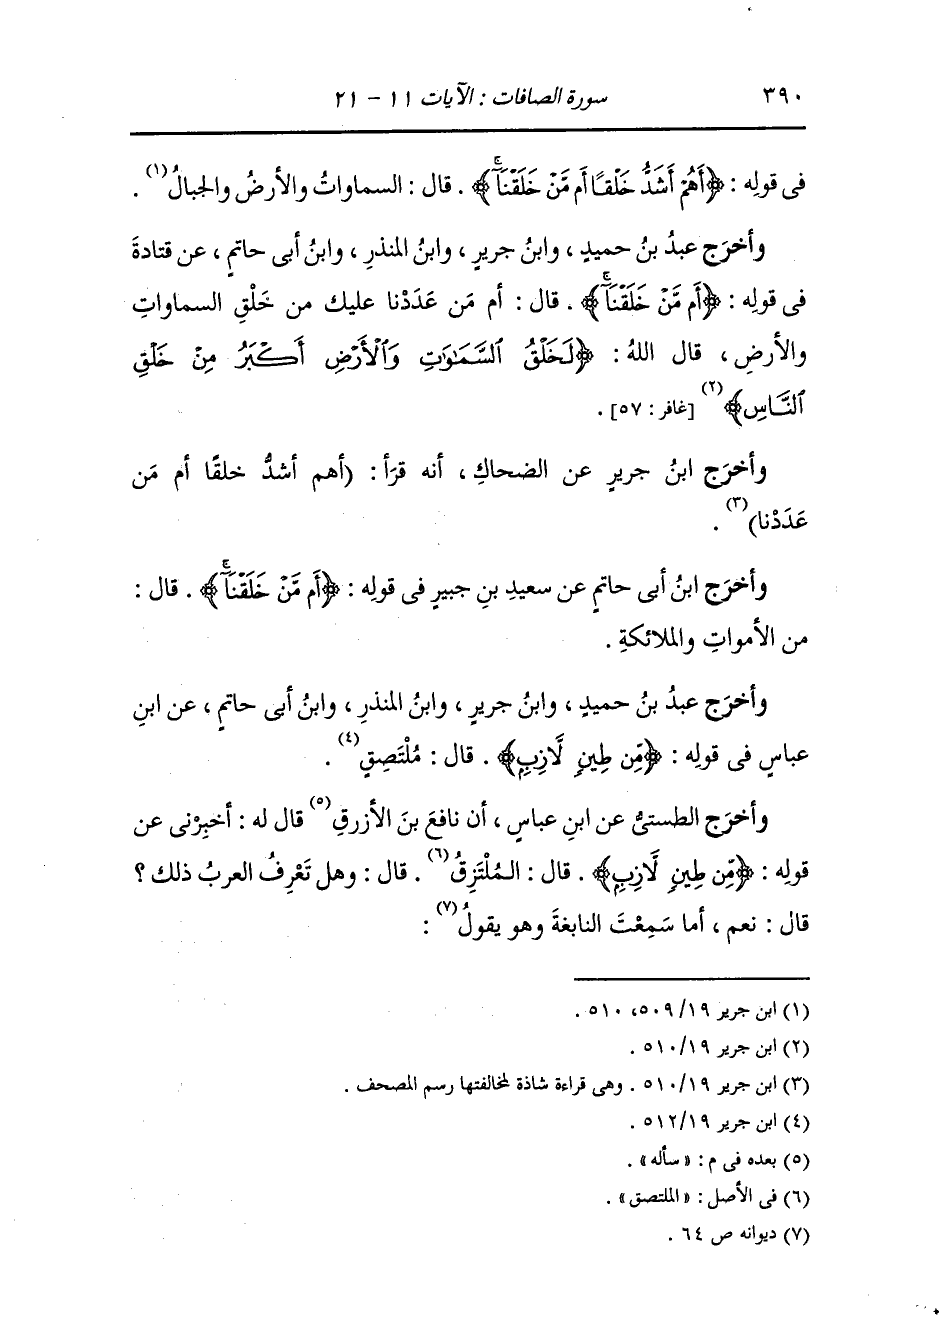 ٣٩٠ سورة الصافات : الآيات ١١ - ٢١
فى قولِه : ﴿أَهُمْ أَشَدُّ خَلْقًا أَم مَّنْ خَلَقْنَآ﴾ . قال : السماواتُ والأرضُ والجبالُ(١) .
وأخرَج عبدُ بنُ حميدٍ ، وابنُ جريرٍ ، وابنُ المنذرِ ، وابنُ أبى حاتمٍ ، عن قتادةَ
فى قولِه : ﴿أَم مَّنْ خَلَقْنَآ﴾ . قال : أم مَن عَدَدْنا عليك من خَلْقِ السماواتِ
والأرضِ ، قال اللهُ : ﴿لَخَلْقُ ٱلسَّمَٰوَٰتِ وَٱلْأَرْضِ أَكْبَرُ مِنْ خَلْقِ
ٱلنَّاسِ﴾(٢) [غافر : ٥٧] .
وأخرَج ابنُ جريرٍ عن الضحاكِ ، أنه قرَأ : (أهم أشدُّ خلقًا أم مَن
عَدَدْنا)(٣) .
وأخرَج ابنُ أبى حاتمٍ عن سعيدِ بنِ جبيرٍ فى قولِه : ﴿أَم مَّنْ خَلَقْنَآ﴾ . قال :
من الأمواتِ والملائكةِ .
وأخرَج عبدُ بنُ حميدٍ ، وابنُ جريرٍ ، وابنُ المنذرِ ، وابنُ أبى حاتمٍ ، عن ابنِ
عباسٍ فى قولِه : ﴿مِّن طِينٍ لَّازِبٍ﴾ . قال : مُلْتَصِقٍ(٤) .
وأخرَج الطستىُّ عن ابنِ عباسٍ ، أن نافعَ بنَ الأزرقِ(٥) قال له : أخبِرْنى عن
قولِه : ﴿مِّن طِينٍ لَّازِبٍ﴾ . قال : المُلْتَزِقُ(٦) . قال : وهل تَعْرِفُ العربُ ذلك ؟
قال : نعم ، أما سَمِعْتَ النابغةَ وهو يقولُ(٧) :
(١) ابن جرير ١٩/ ٥٠٩، ٥١٠ .
(٢) ابن جرير ١٩/ ٥١٠ .
(٣) ابن جرير ١٩/ ٥١٠ . وهى قراءة شاذة لمخالفتها رسم المصحف .
(٤) ابن جرير ١٩/ ٥١٢ .
(٥) بعده فى م : « سأله » .
(٦) فى الأصل : « الملتصق » .
(٧) ديوانه ص ٦٤ .